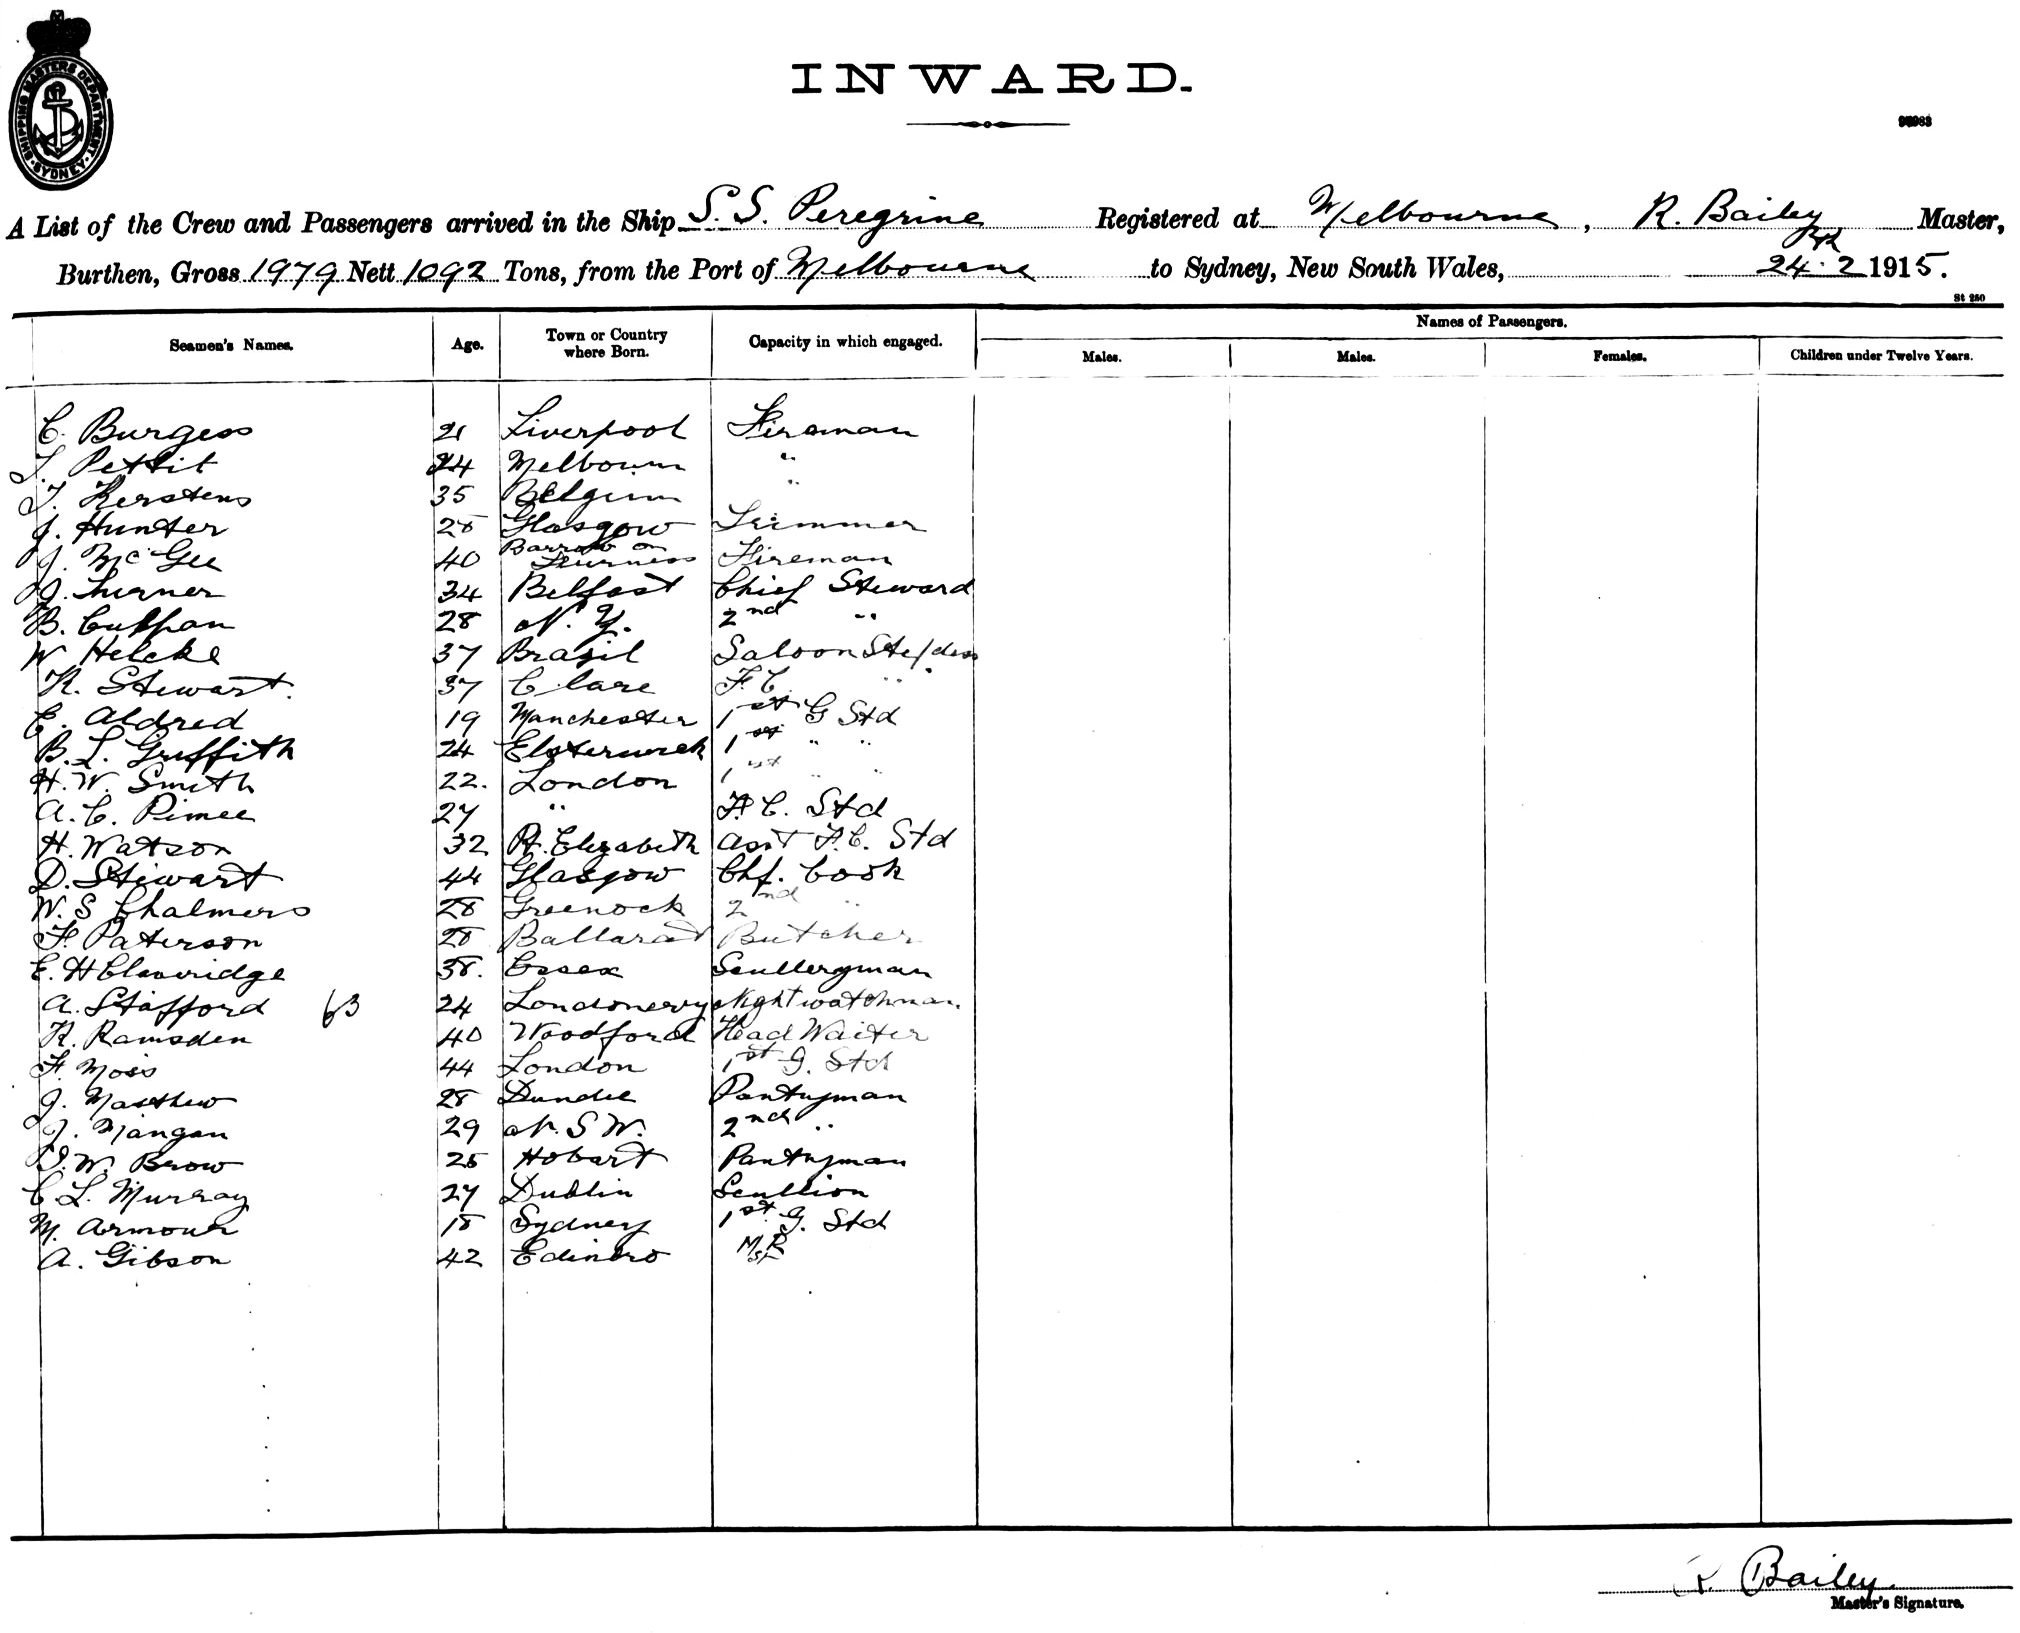 SHIPPING MASTERS DEPARTMENT · SYDNEY ·
INWARD.
A List of the Crew and Passengers arrived in the Ship S.S. Peregrine Registered at Melbourne, R. Bailey Master,
Burthen, Gross 1979 Nett 1092 Tons, from the Port of Melbourne to Sydney, New South Wales, 24.2 1915.
St 250
Names of Passengers.
Seamen's Names. Age. Town or Country where Born. Capacity in which engaged. Males. Males. Females. Children under Twelve Years.
C. Burgess 21 Liverpool Fireman
Pettit 24 Melbourn "
Kerstens 35 Belgium "
J. Hunter 28 Glasgow Trimmer
J. McGee 40 Barrow on Furness Fireman
J. Turner 34 Belfast Chief Steward
B. Culpan 28 N. Z. 2nd "
W Helcke 37 Brazil Saloon
R. Stewart. 37 Clare F. C. "
E. Aldred 19 Manchester 1st G Std
B. L. Griffith 24 Elsternwick 1st " "
H. W. Smith 22. London 1st " "
A. C. Pimee 27 " F. C. Std
H. Watson 32 Pt. Elizabeth Asst F. C. Std
D. Stewart 44 Glasgow Chf. Cook
W. S Chalmers 28 Greenock 2nd "
F. Paterson 28 Ballarat Butcher
E. H Claveridge 38. Essex Sculleryman
A. Stafford 63 24 Londonerry Nightwatchman
R. Ramsden 40 Woodford Head Waiter
F. Moss 44 London 1st G. Std
J. Matthew 28 Dundee Pantryman
J. Mangan 29 N. S W. 2nd "
W. Brow 25 Hobart Pantryman
C. L. Murray 27 Dublin Scullion
M. Armour 18 Sydney 1st G. Std
A. Gibson 42 Edinbro
R. Bailey
Master's Signature.